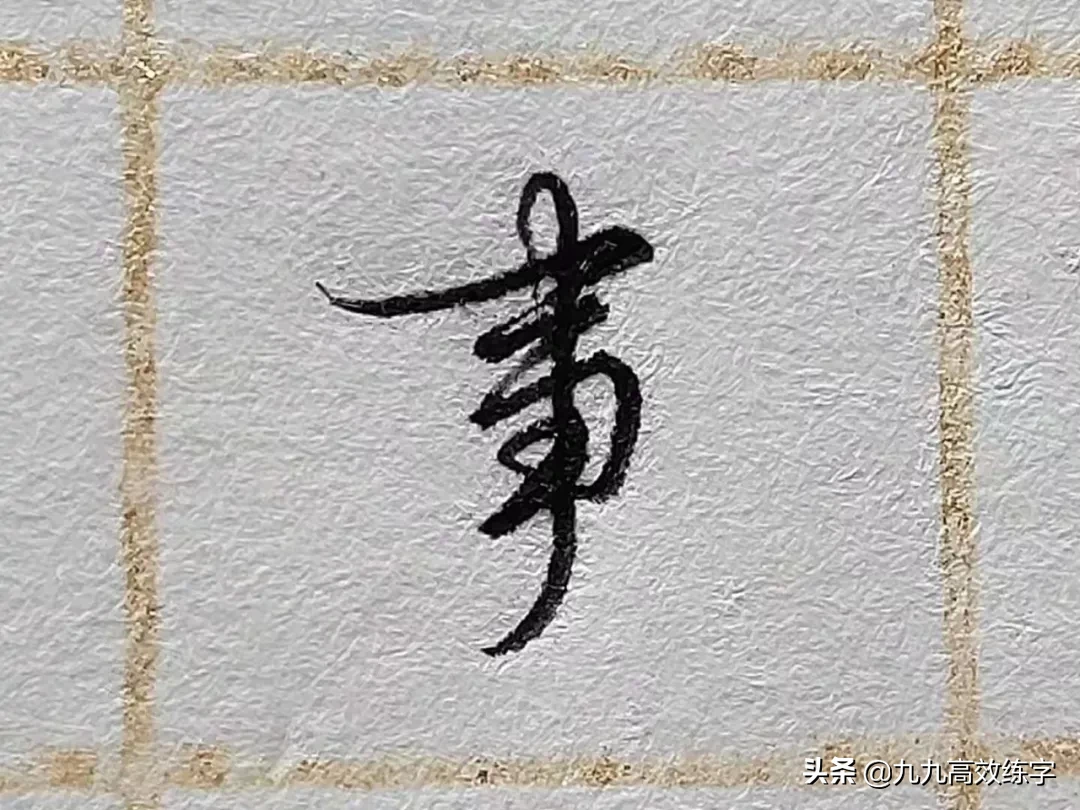 事
头条 @九九高效练字